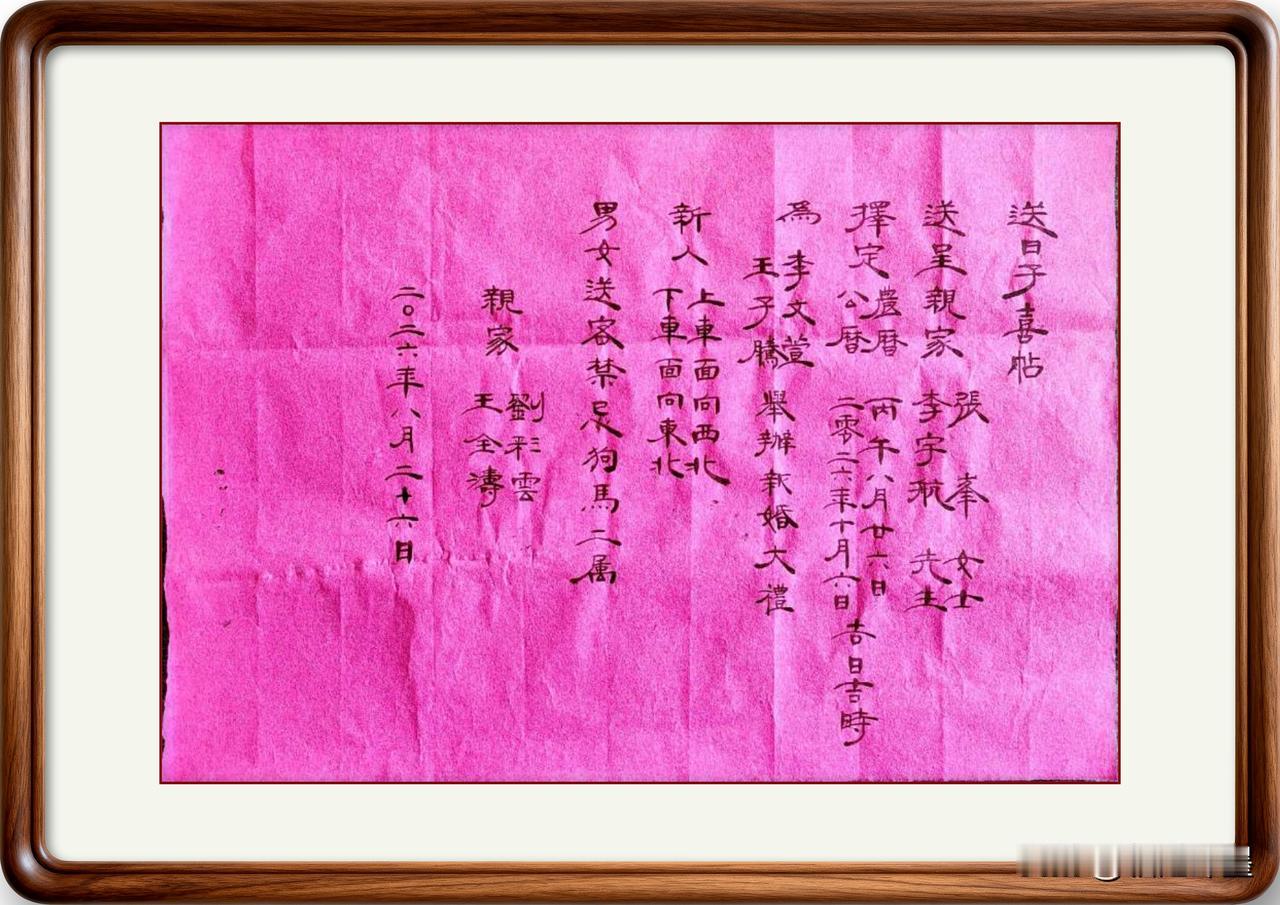 送日子喜帖
送呈親家 張峯 女士
李宇航 先生
擇定 農暦 丙午八月廿六日
公暦 二零二六年十月六日 吉日吉時
爲 李文萱
王子騰 舉辦新婚大禮
新人 上車面向西北
下車面向東北
男女送客禁忌狗馬二属
親家 劉彩雲
王全濤
二〇二六年八月二十六日